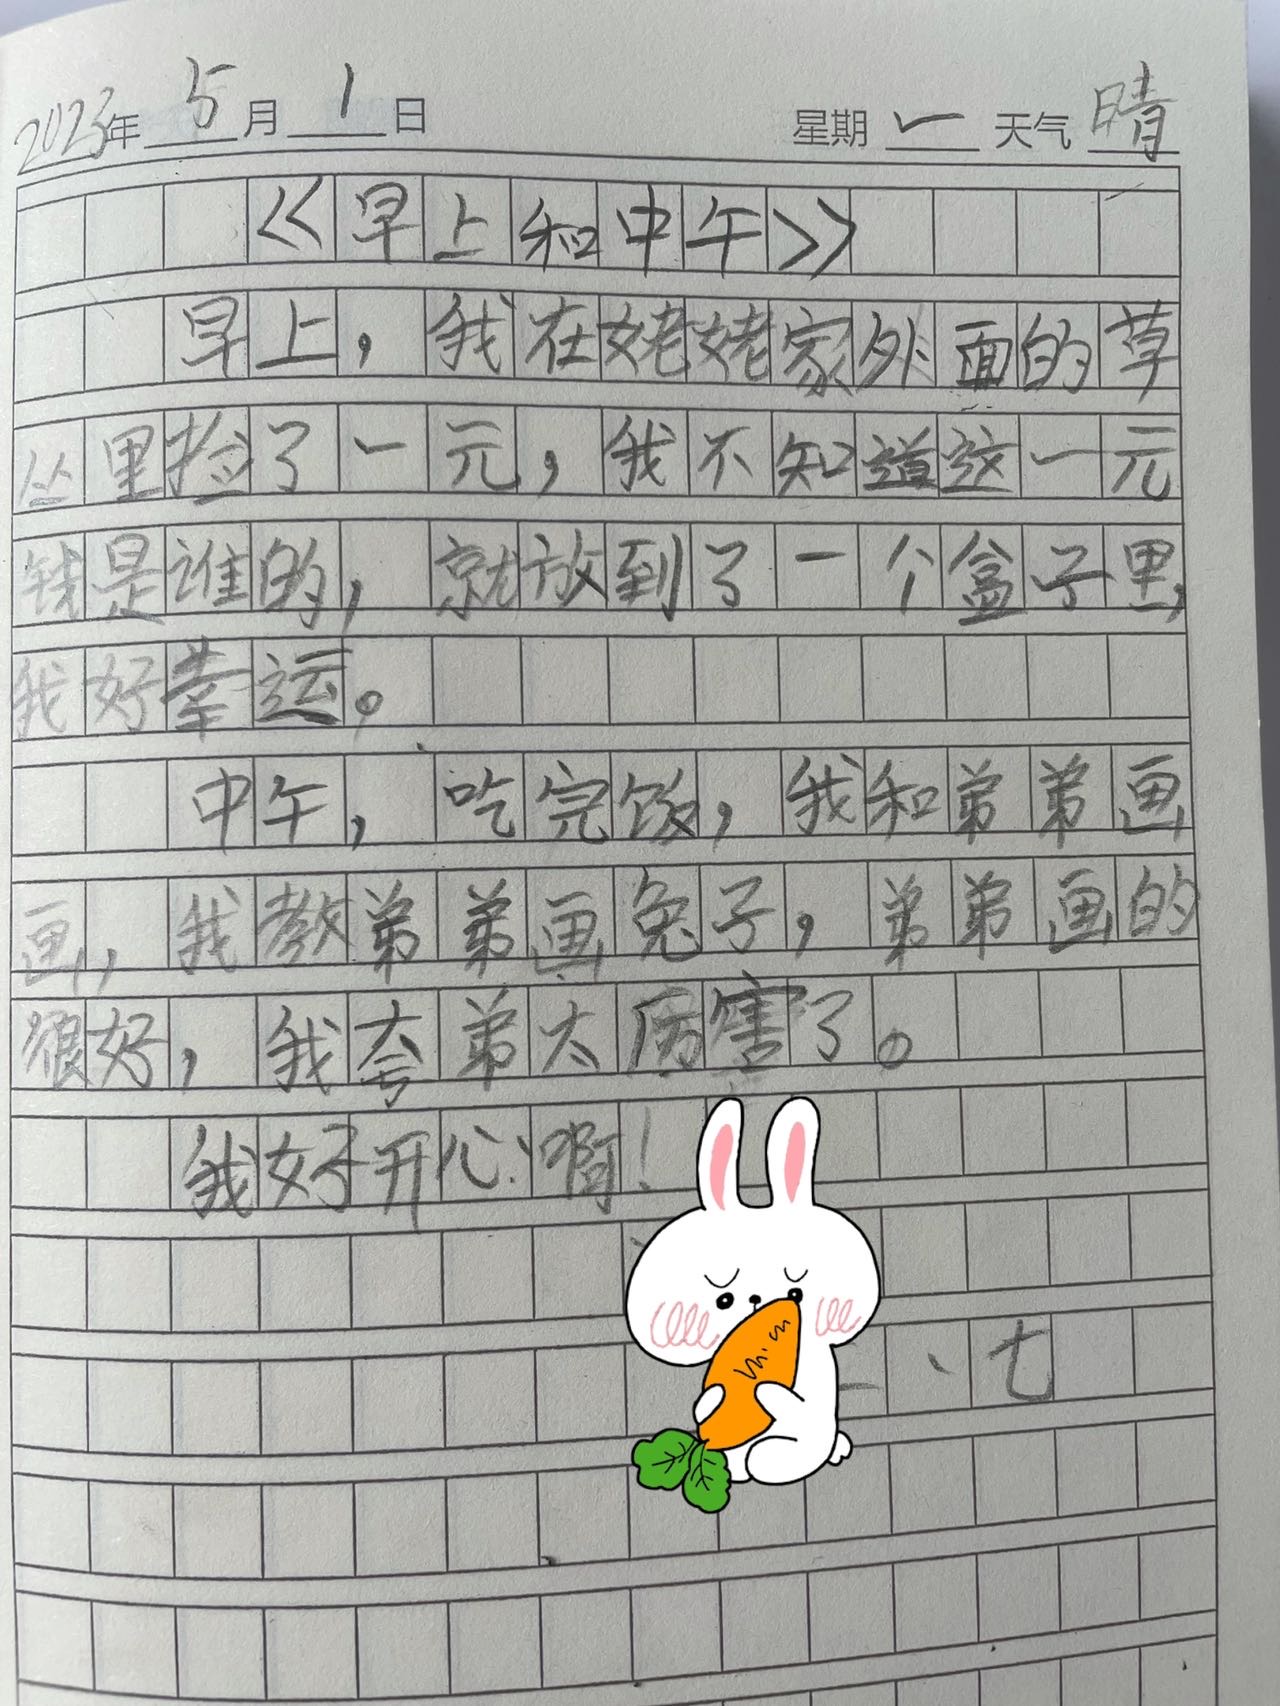 2023年5月1日 星期一 天气晴
<<早上和中午>>
早上，我在姥姥家外面的草
丛里捡了一元，我不知道这一元
钱是谁的，就放到了一个盒子里，
我好幸运。
中午，吃完饭，我和弟弟画
画，我教弟弟画兔子，弟弟画的
很好，我夸弟太厉害了。
我好开心啊！
七